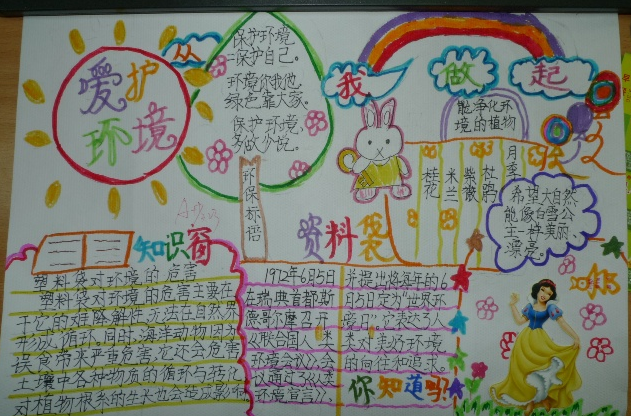 爱护
环境
从
我
做
起
保护环境
=保护自己。
环境你我他,
绿色靠大家。
保护环境、
多做少说。
环保标语
能净化环
境的植物
桂花
米兰
紫薇
杜鹃
月季
希望大自然
能像白雪公
主一样美丽、
漂亮。
知识窗
资料袋
塑料袋对环境的危害
塑料袋对环境的危害主要在
于它的难降解性,无法在自然界
形成循环。同时,海洋动物因为
误食带来严重危害,它还会危害
土壤中各种物质的循环与转化
对植物根系的生长也会造成影响
1972年6月5日
在瑞典首都斯
德哥尔摩召开
《联合国人类
环境会议》,会
议通过了《人类
环境宣言》、
并提出将每年的6
月5日定为“世界环
境日”。它表达了人
类对美好环境
的向往和追求。
你知道吗?